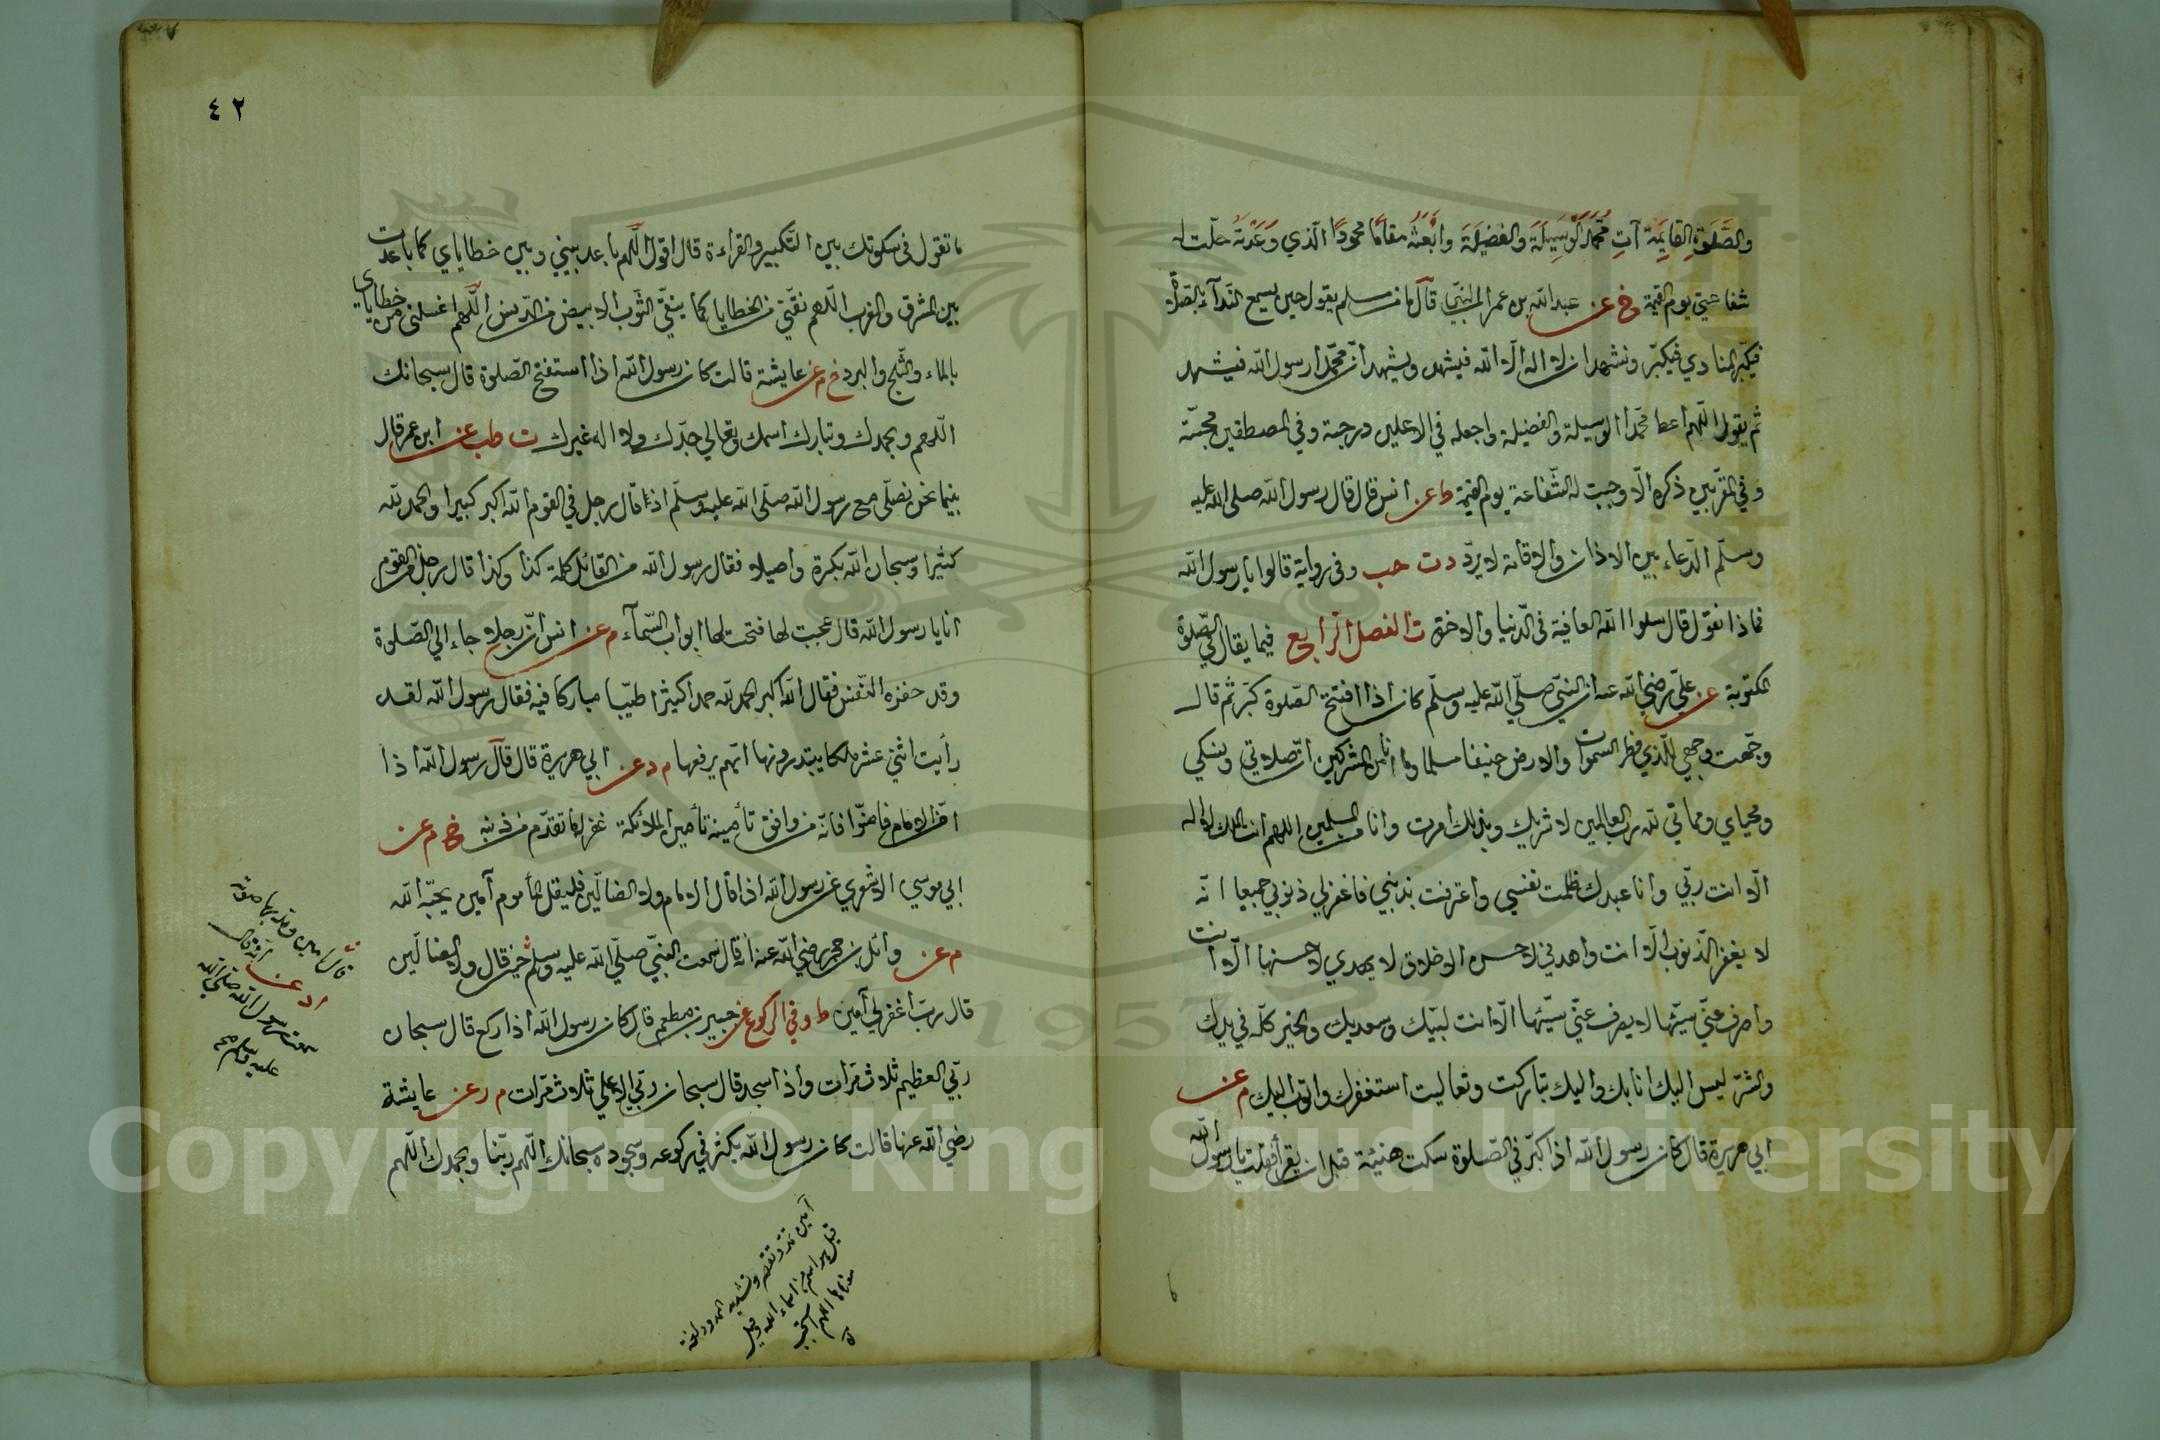 والصَّلوٰةِ القَايِمَةِ آتِ مُحَمَّدًا الْوَسِيلَةَ والفَضِيلَةَ وَابْعَثْهُ مقَامًا محمُودًا الّذي وَعَدْتَهُ حلّت له
شفاعتي يوم القيمة خ عن عبد الله بن عمر قال مسلم يقول حين يسمع النّدآء بالصّلوة
فيكبّر المنادي فيكبّر ونشهد ان لا اله الّا الله فيشهد ويشهد انّ محمّدا رسول الله فيشهد
ثم يقول اللّهم اعط محمّدا الوسيلة والفضيلة واجعله في الاعلين درجة وفي المصطفين محبّته
وفي المقرّبين ذكره الّا وجبت له الشّفاعة يوم القيمة ط عن انس قال قال رسول الله صلى الله عليه
وسلّم الدّعاء بين الاذان والاقامة لا يردّ د ت حب وفي رواية قالوا يا رسول الله
فماذا نقول قال سلوا الله العافية في الدّنيا والاخرة ت الفصل الرّابع فيما يقال في الصّلوة
المكتوبة عن عليّ رضي الله عنه ان النبيّ صلّي الله عليه وسلّم كان اذا افتتح الصّلوة كبّر ثم قال
وجّهت وجهي للّذي فطر السّموات والارض حنيفا مسلما وما انا من المشركين انّ صلاتي ونسكي
ومحياي ومماتي لله ربّ العالمين لا شريك وبذلك امرت وانا من المسلمين اللهم انت الملك لا اله
الّا انت ربّي وانا عبدك ظلمت نفسي واعترفت بذنبي فاغفر لي ذنوبي جميعا انّه
لا يغفر الذّنوب الّا انت واهدني لاحسن الاخلاق لا يهدي لاحسنها الّا انت
واصرف عنّي سيّئها لا يصرف عنّي سيّئها الّا انت لبّيك وسعديك والخير كلّه في يديك
والشرّ ليس اليك انا بك واليك تباركت وتعاليت استغفرك واتوب اليك م عن
ابي هريرة قال كان رسول الله اذا كبّر في الصّلوة سكت هنيئة قبل ان يقرأ فقلت يا رسول الله
٤٢
ما تقول في سكوتك بين التّكبير والقراءة قال اقول اللّهم باعد بيني وبين خطاياي كما باعدت
بين المشرق والمغرب اللّهم نقّني من الخطايا كما ينقّي الثّوب الابيض من الدّنس اللّهم اغسلني من خطاياي
بالماء والثّلج والبرد خ م عن عايشة قالت كان رسول الله اذا استفتح الصّلوة قال سبحانك
اللّهم وبحمدك وتبارك اسمك وتعالي جدّك ولا اله غيرك ت طب عن ابن عمر قال
بينما نحن نصلّي مع رسول الله صلّى الله عليه وسلّم اذ قال رجل في القوم الله اكبر كبيرا والحمد لله
كثيرا وسبحان الله بكرة واصيلا فقال رسول الله من القائل كلمة كذا وكذا قال رجل من القوم
انا يا رسول الله قال عجبت لها فتحت لها ابواب السّمآء م عن انس انّ رجلا جاء الي الصّلوة
وقد حفزه النّفس فقال الله اكبر الحمد لله حمدا كثيرا طيّبا مباركا فيه فقال رسول الله لقد
رأيت اثني عشر ملكا يبتدرونها ايّهم يرفعها م د عن ابي هريرة قال قال رسول الله اذا
امّن الامام فامّنوا فانّه من وافق تأمينه تأمين الملائكة غفر له ما تقدّم من ذنبه خ م عن
ابي موسي الاشعري عن رسول الله اذا قال الامام ولا الضالّين فليقل المأموم آمين يحبّه الله
م عن وائل بن حجر رضي الله عنه انّه قال سمعت النبيّ صلّي الله عليه وسلم حين قال ولا الضالّين
قال ربّ اغفر لي آمين ط وفي الرّكوع عن جبير بن مطعم قال كان رسول الله اذا ركع قال سبحان
ربّي العظيم ثلاث مرّات واذا سجد قال سبحان ربّي الاعلي ثلاث مرّات م ر عن عايشة
رضي الله عنها قالت كان رسول الله يكثر في ركوعه وسجوده سبحانك اللّهم ربّنا وبحمدك اللّهم
قال آمين ومدّ بها صوته
د عن
سمعت رسول الله صلى الله
عليه وسلم
آمين تمدّ وتقصر وتشديد الممدود لغة
قيل هو اسم من اسماء الله وقيل
معناها اللهم استجب
Copyright © King Saud University
1957